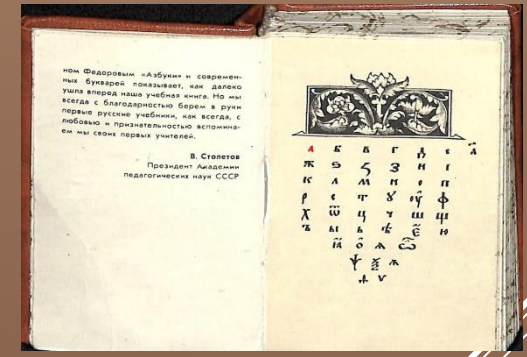 ном Федоровым «Азбуки» и современ-
ных букварей показывает, как далеко
ушла вперед наша учебная книга. Но мы
всегда с благодарностью берем в руки
первые русские учебники, как всегда, с
любовью и признательностью вспомина-
ем мы своих первых учителей.
В. Столетов
Президент Академии
педагогических наук СССР
а б в г д е
ж ѕ з и
к л м н о п
р с т ꙋ ф
х ѿ ц ч ш щ
ъ ы ь ѣ ю
ꙗ ѧ
ѱ ѯ
ѵ